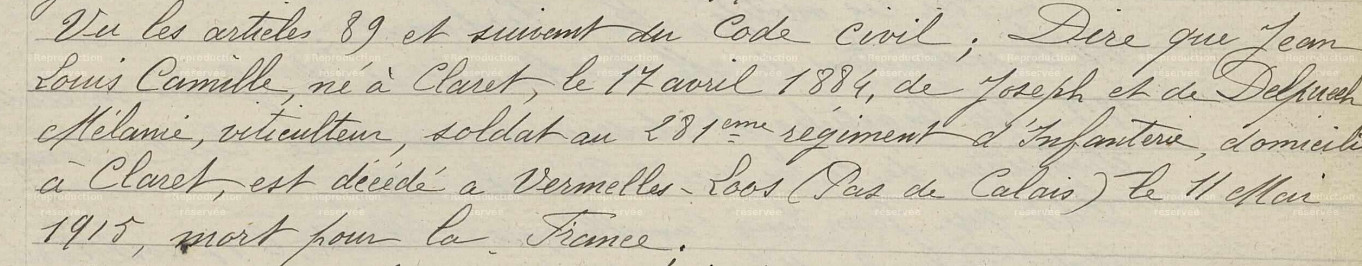 Vu les articles 89 et suivant du Code civil ; Dire que Jean
Louis Camille, né à Claret, le 17 avril 1884, de Joseph et de Delpuech
Mélanie, viticulteur, soldat au 281eme régiment d'Infanterie, domicili
à Claret, est décédé a Vermelles-Loos (Pas de Calais) le 11 Mai
1915, mort pour la France ;